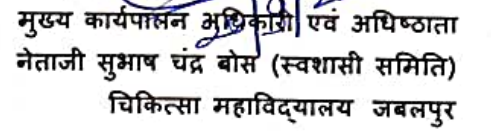 मुख्य कार्यपालन अधिकारी एवं अधिष्ठाता
नेताजी सुभाष चंद्र बोस (स्वशासी समिति)
चिकित्सा महाविद्यालय जबलपुर